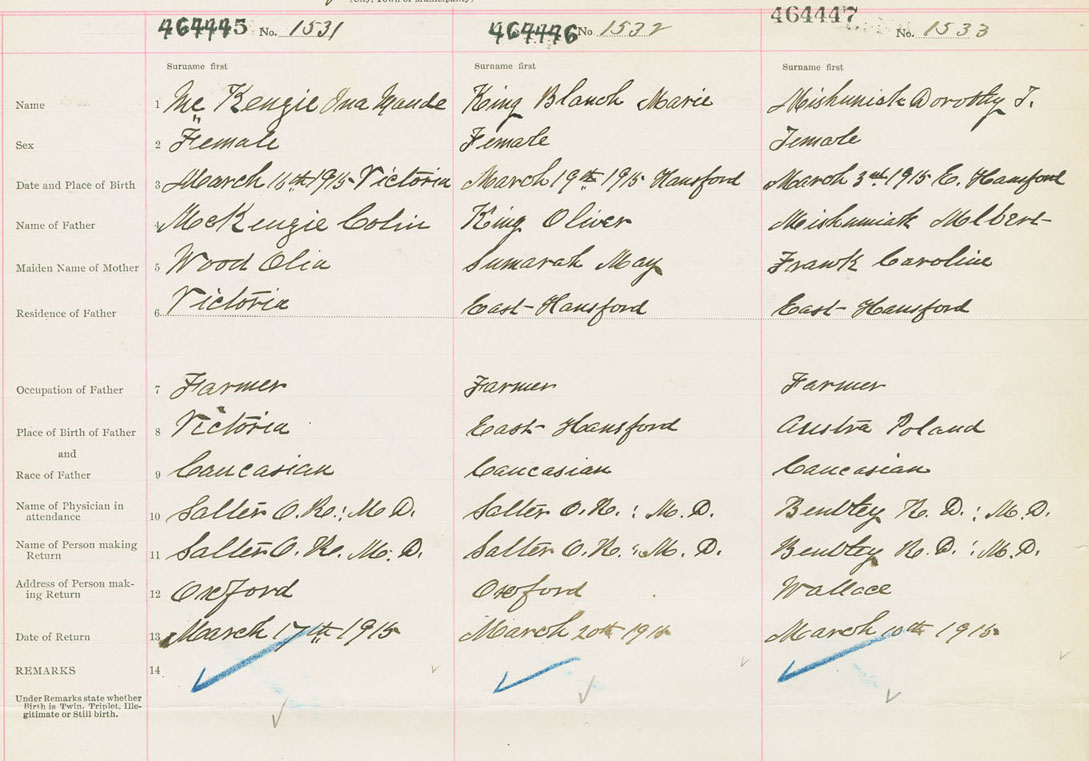 464445 No. 1531 464446 No 1532 464447 No. 1533
Surname first Surname first Surname first
Name 1 Mc Kenzie Ina Maude King Blanch Marie Dorothy J.
Sex 2 Female Female Female
Date and Place of Birth 3 March 16th 1915 Victoria March 19th 1915 Hansford March 3rd 1915 E. Hansford
Name of Father 4 McKenzie Colin King Oliver Melbert
Maiden Name of Mother 5 Wood Olia Sumarah May Frank Caroline
Residence of Father 6 Victoria East Hansford East Hansford
Occupation of Father 7 Farmer Farmer Farmer
Place of Birth of Father 8 Victoria East Hansford Austra Poland
and
Race of Father 9 Caucasian Caucasian Caucasian
Name of Physician in
attendance 10 Salter O. R.: M D. Salter O. R. : M. D. Bentley R. D. : M. D.
Name of Person making
Return 11 Salter O. R. M. D. Salter O. R. : M. D. Bentley R. D. : M. D.
Address of Person mak-
ing Return 12 Oxford Oxford Wallace
Date of Return 13 March 17th 1915 March 20th 1915 March 10th 1915
REMARKS 14
Under Remarks state whether
Birth is Twin, Triplet, Ille-
gitimate or Still birth.